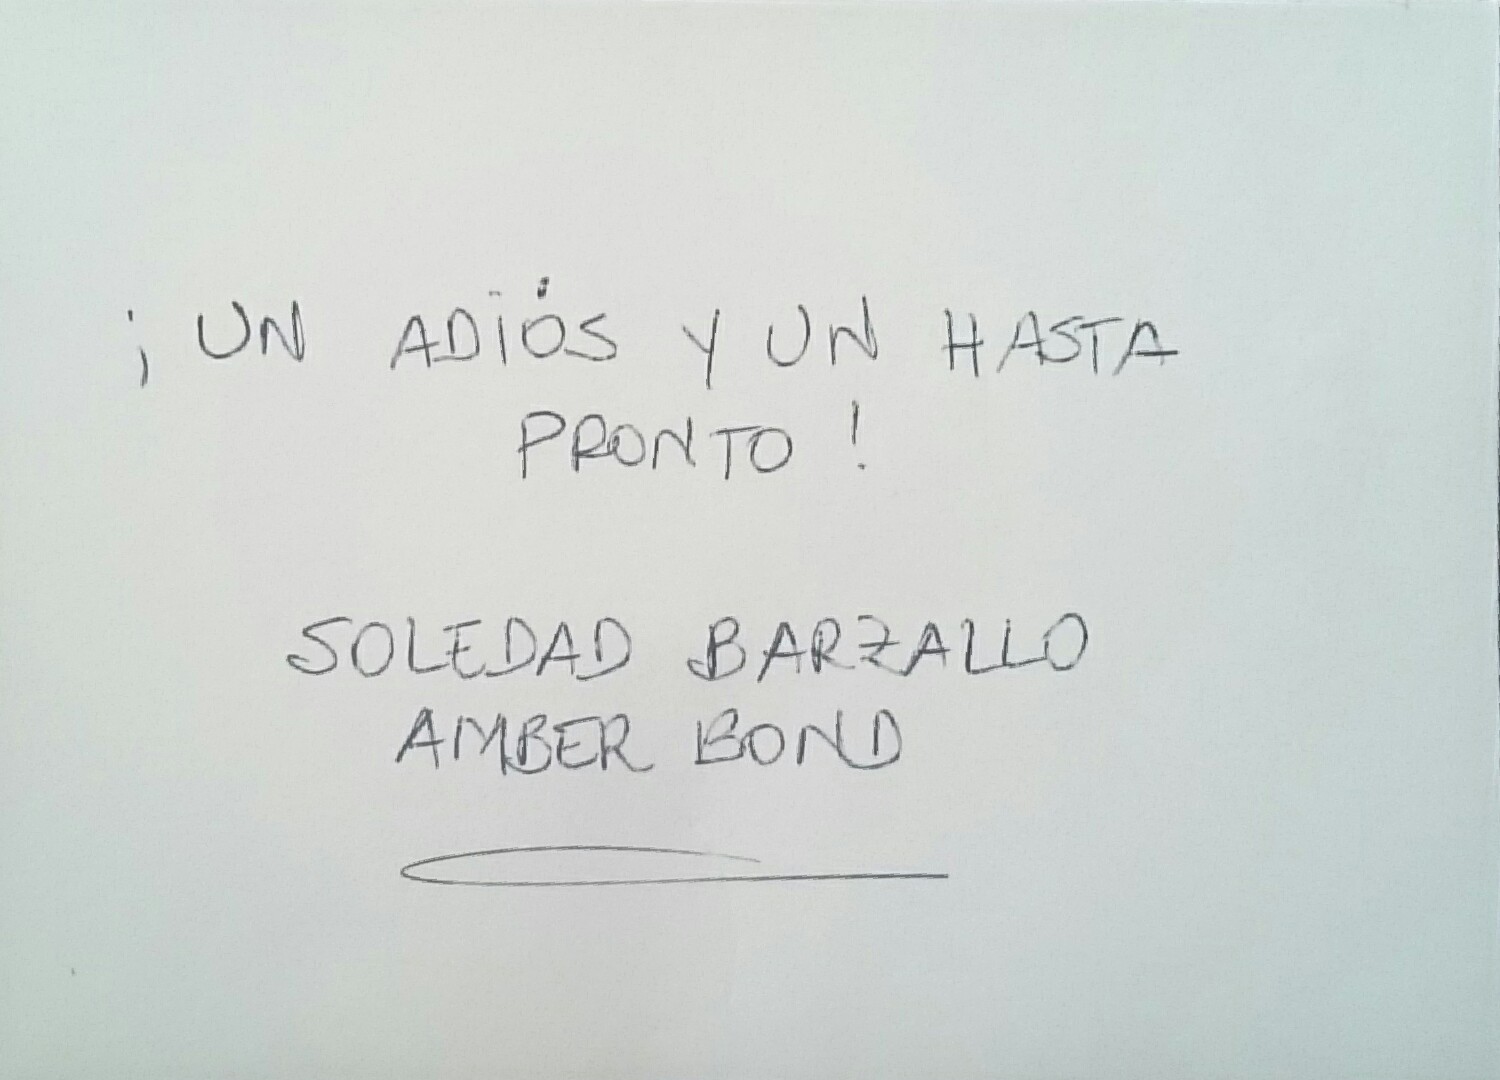 ¡UN ADIÓS Y UN HASTA
PRONTO!
SOLEDAD BARZALLO
AMBER BOND